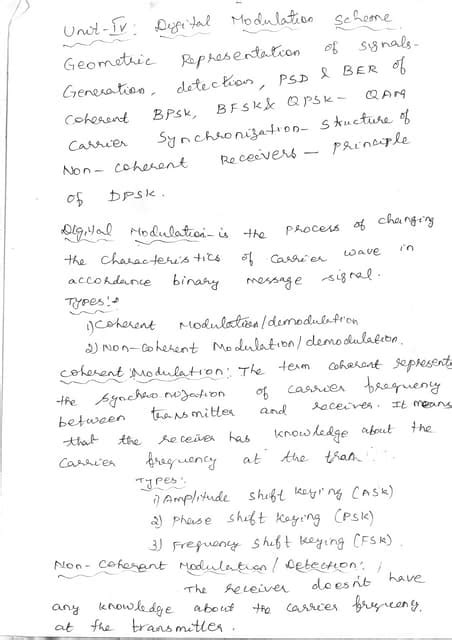 Unit-IV: Digital Modulation Scheme
Geometric Representation of signals-
Generation, detection, PSD & BER of
Coherent BPSK, BFSK & QPSK - QAM
Carrier Synchronization - Structure of
Non-coherent Receivers - principle
of DPSK.
Digital Modulation - is the process of changing
the characteristics of carrier wave in
accordance binary message signal.
Types:-
1) Coherent Modulation/demodulation
2) Non-Coherent Modulation/demodulation.
Coherent Modulation: The term coherent represents
the synchronization of carrier frequency
between transmitter and receiver. It means
that the receiver has knowledge about the
carrier frequency at the tran
Types:
1) Amplitude shift keying (ASK)
2) Phase shift keying (PSK)
3) Frequency shift keying (FSK).
Non-Coherent Modulation/Detection:
The receiver doesn't have
any knowledge about the carrier frequency
at the transmitter.